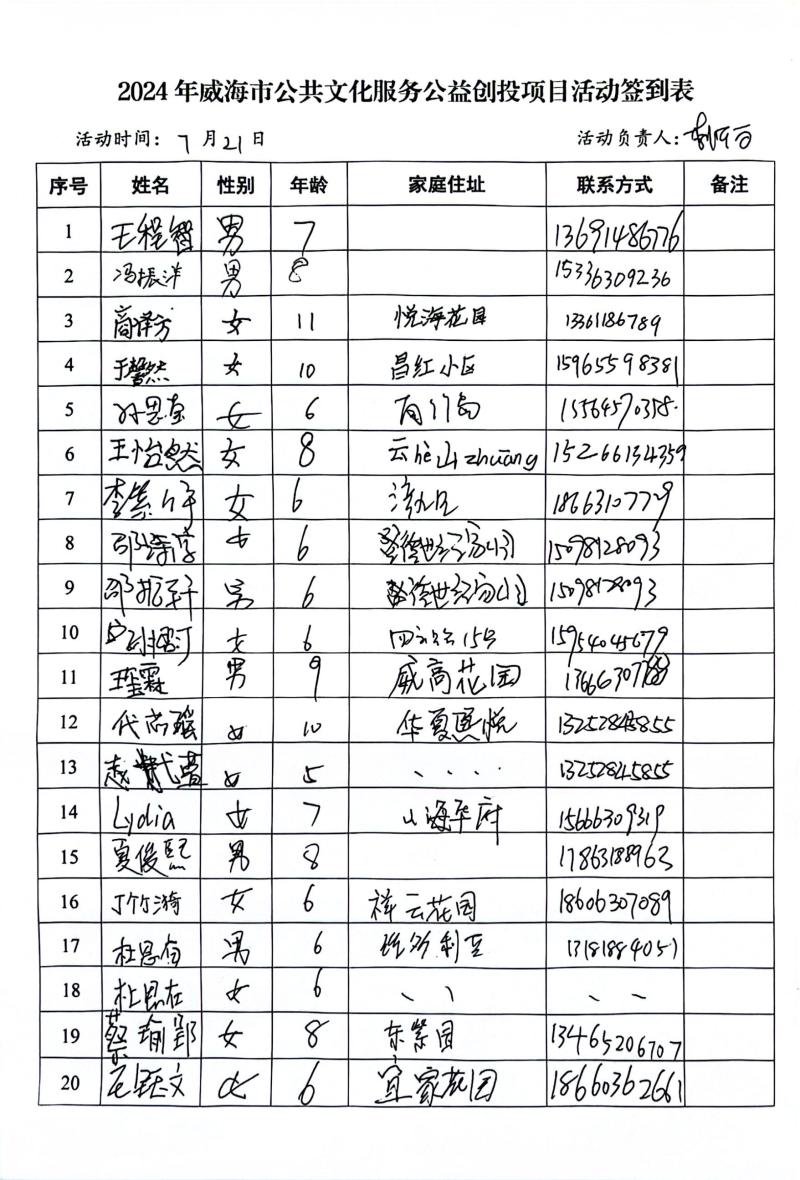 2024年威海市公共文化服务公益创投项目活动签到表
活动时间：7月21日 活动负责人：
序号 姓名 性别 年龄 家庭住址 联系方式 备注
1 王程智 男 7 13691486776
2 冯振洋 男 8 15336309236
3 商译方 女 11 悦海花园 13361186789
4 于馨然 女 10 昌红小区 15965598381
5 孙思 女 6 15564570358
6 王怡然 女 8 云hè山zhuāng 15266134359
7 李 女 6 18663107729
8 邵 女 6 世纪 15098128093
9 邵 男 6 世纪 15098128093
10 女 6 15号 15954045679
11 男 9 威高花园
12 代尚瑶 女 10 华夏熙悦 13252845855
13 女 5 、、、、 13252845855
14 Lydia 女 7 山海华府 15666309319
15 夏俊熙 男 8 17863188963
16 丁竹漪 女 6 祥云花园 18606307089
17 杜思有 男 6 13181884051
18 杜思在 女 6 、、 、、
19 蔡瑜郢 女 8 东紫园 13465206707
20 文 女 6 宜家花园 18660362661